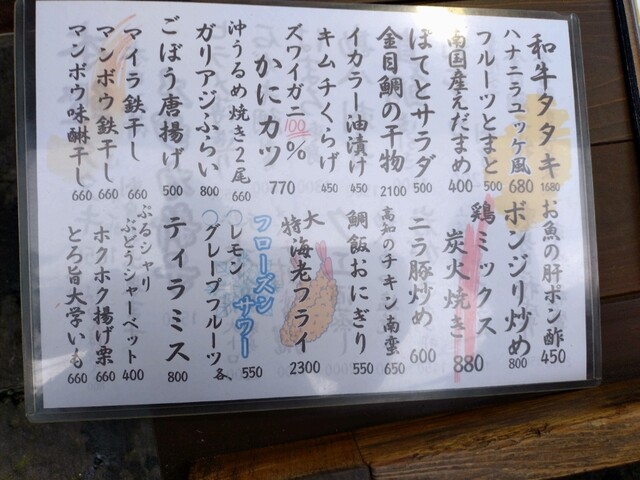 和牛タタキ 1680
ハナニラユッケ風 680
フルーツとまと 500
南国産えだまめ 400
ぽてとサラダ 500
金目鯛の干物 2100
イカラー油漬け 450
キムチくらげ 450
ズワイガニ100%
かにカツ 770
沖うるめ焼き2尾 660
ガリアジふらい 800
ごぼう唐揚げ 500
マイラ鉄干し 660
マンボウ鉄干し 660
マンボウ味醂干し 660
お魚の肝ポン酢 450
ボンジリ炒め 800
鶏ミックス
炭火焼き 880
ニラ豚炒め 600
高知のチキン南蛮 650
鯛飯おにぎり 550
特大海老フライ 2300
フローズンサワー
○レモン
○グレープフルーツ 各550
ティラミス 800
ぷるシャリ
ぶどうシャーベット 400
ホクホク揚げ栗 660
とろ旨大学いも 660